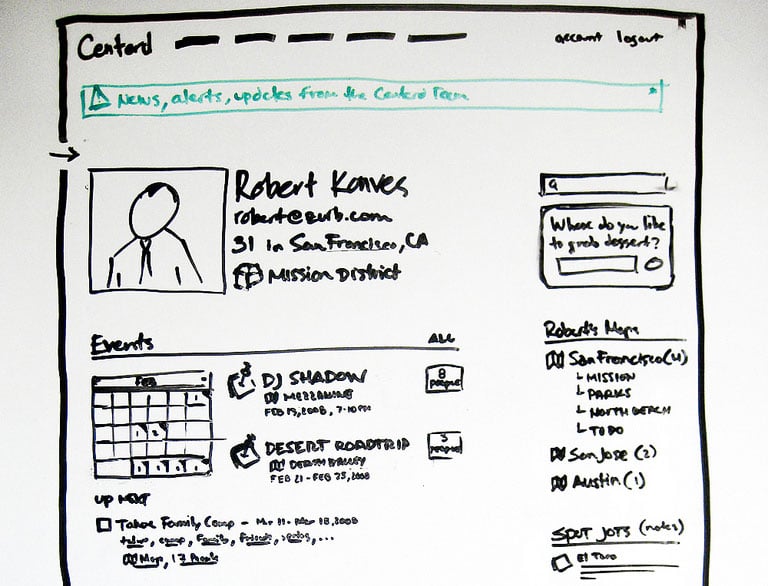 Centerd
account logout
News, alerts, updates from the Centerd Team
Robert Konves
robert@zurb.com
31 in San Francisco, CA
Mission District
Where do you like
to grab dessert?
Events ALL
FEB
DJ SHADOW
MEZZANINE
FEB 19, 2008, 7-10PM
8
people
DESERT ROADTRIP
DEATH VALLEY
FEB 21 - FEB 25, 2008
3
people
UP NEXT
Tahoe Family Camp - Mar 11 - Mar 18, 2008
tahoe, camp, Family, Friends, ...
Map, 17 People
Robert's Maps
San Francisco (4)
MISSION
PARKS
NORTH BEACH
TODO
San Jose (2)
Austin (1)
SPOT JOTS (notes)
El Toro